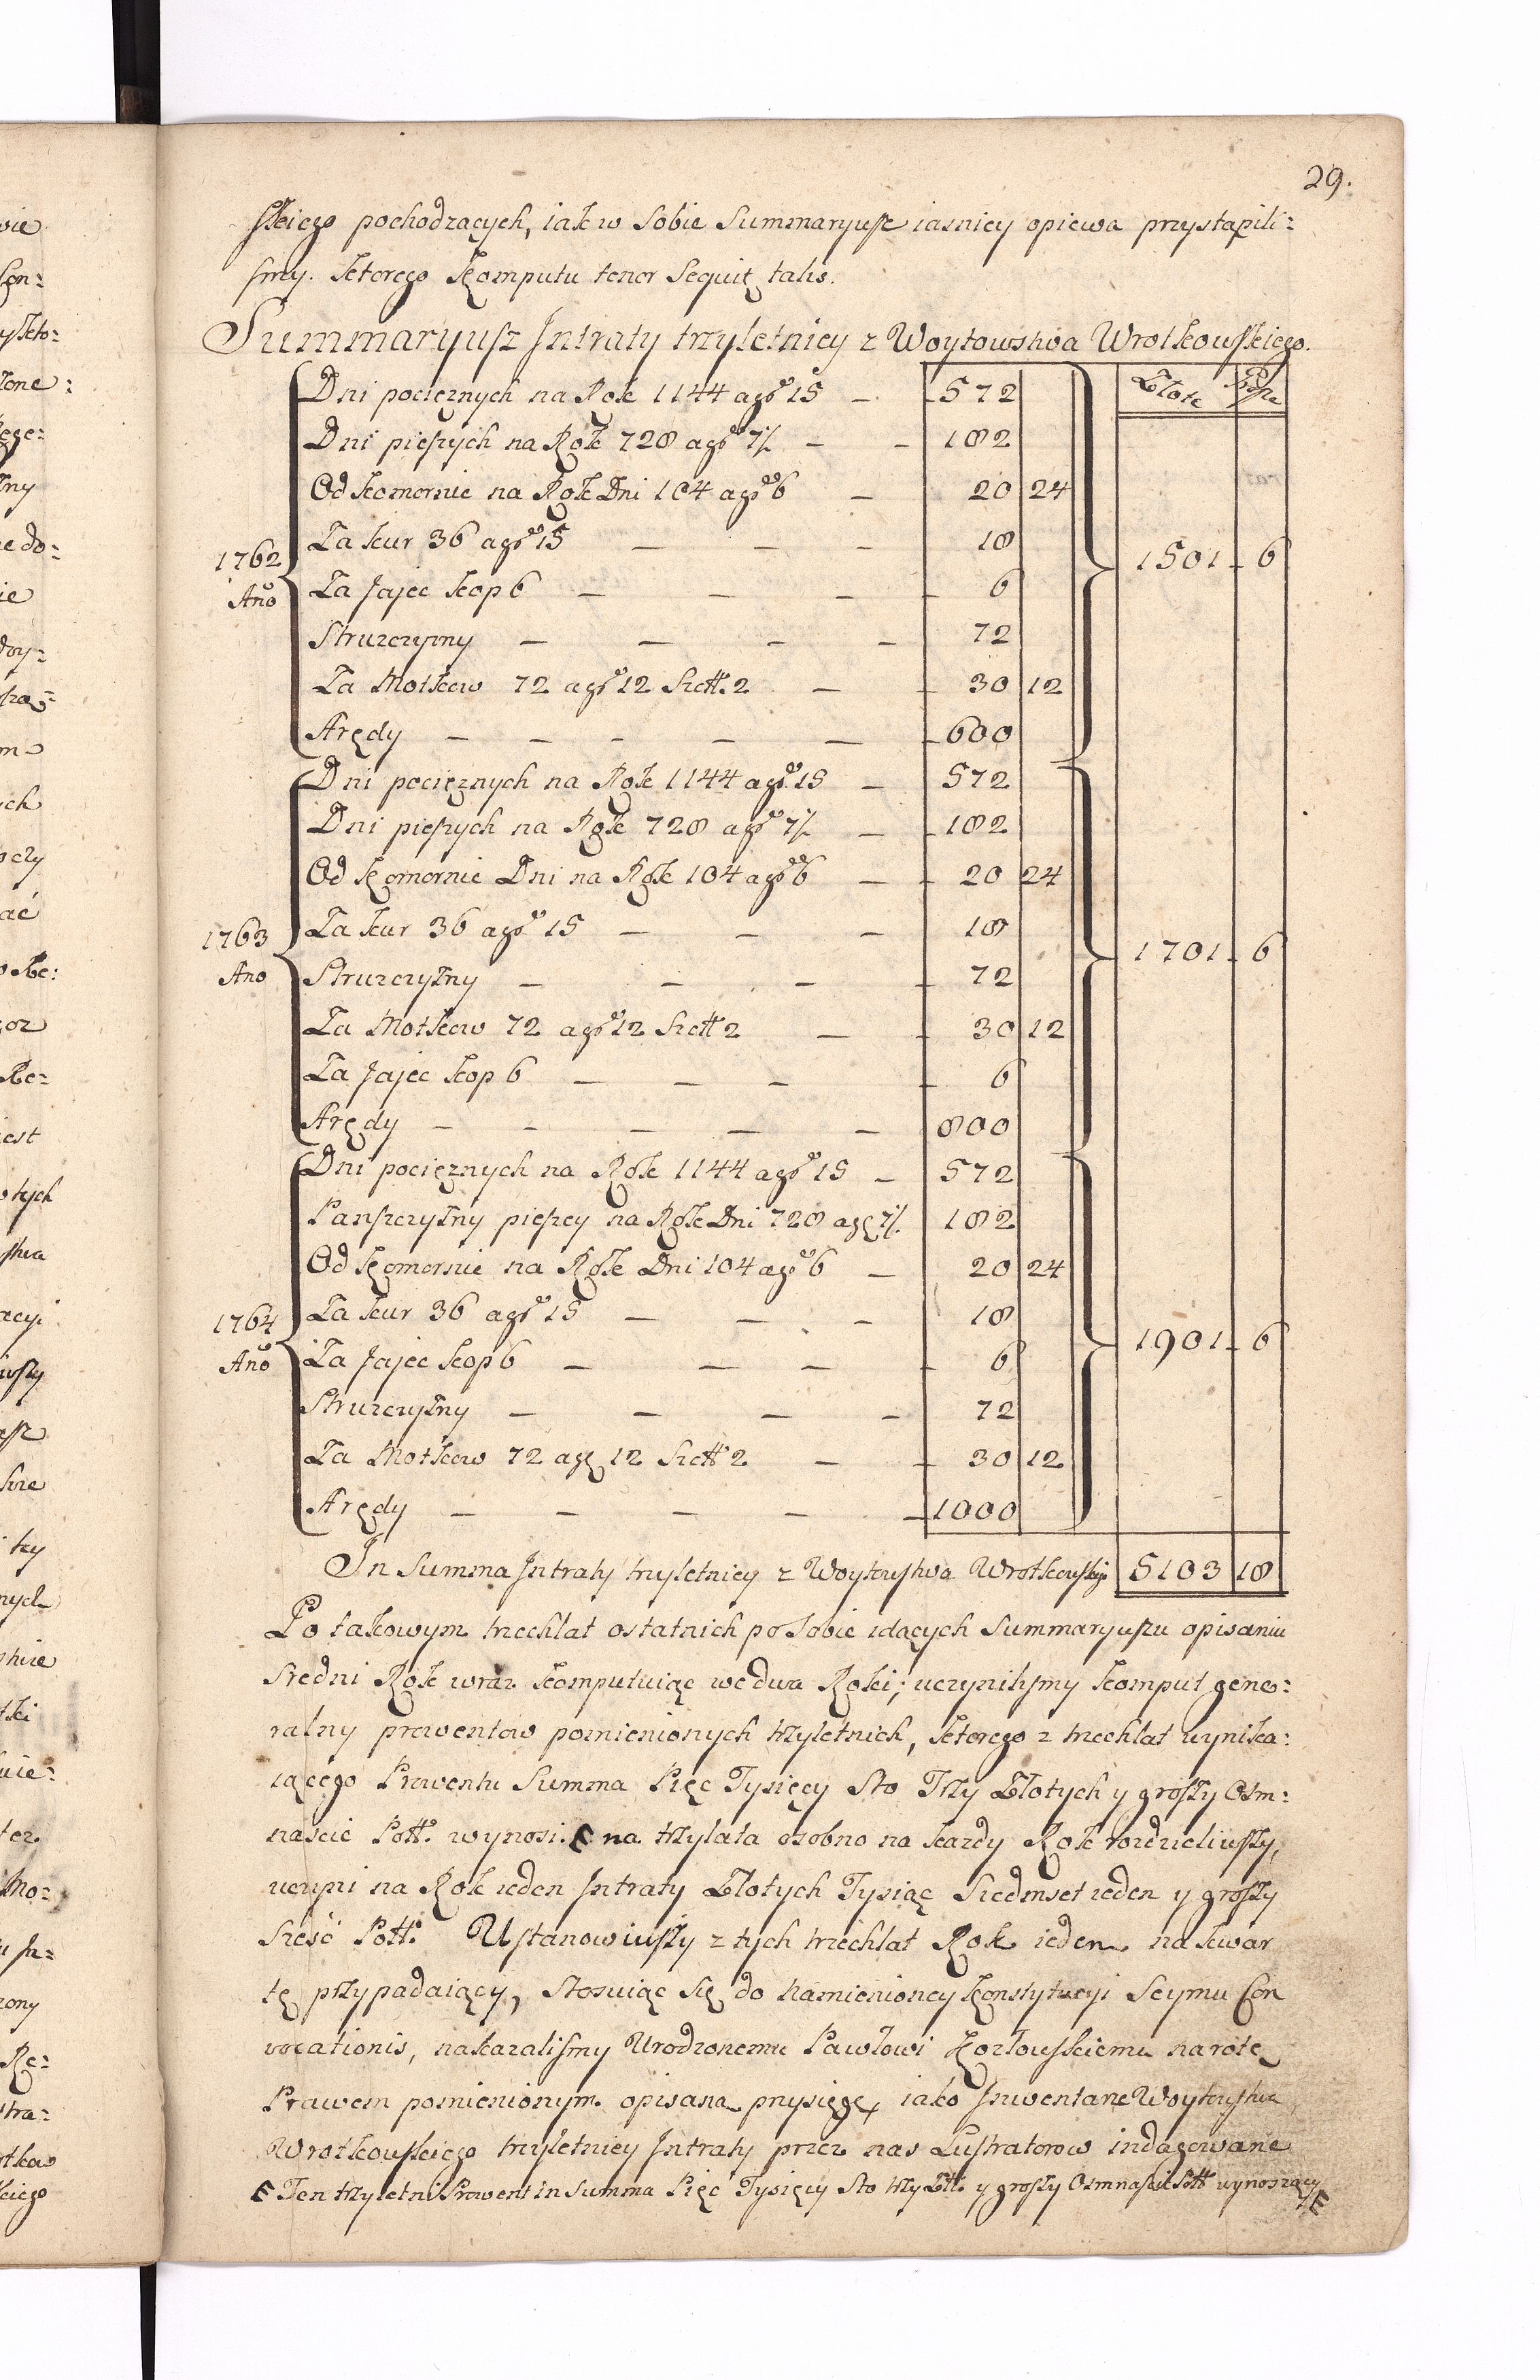 29.
skiego pochodzących, iak w sobie Summaryusz iasniey opiewa przystąpili=
smy. Ktorego Komputu tenor sequit talis.
Summaryusz Jntraty trzyletniey z Woytowstwa Wrotkowskiego.
Złote Grosze
Dni pociężnych na Rok 1144 a gr 15 — 572
Dni pieszych na Rok 728 a gr 7½ — — 182
Od komornic na Rok Dni 104 a gr 6 — 20 24
Za kur 36 a gr 15 — — — 18
1762 Año
1501 6
Za Jajec kop 6 — — — 6
Struzczyzny — — — — 72
Za Motkow 72 a gr 12 Szctt. 2 — 30 12
Arędy — — — — — 600
Dni pociężnych na Rok 1144 a gr 15 — 572
Dni pieszych na Rok 728 a gr 7½ — 182
Od Komornic Dni na Rok 104 a gr 6 — 20 24
Za kur 36 a gr 15 — — — 18
1763 Ano
1701 6
Struzczyzny — — — 72
Za Motkow 72 a gr 12 Szctt 2 — 30 12
Za Jajec kop 6 — — — 6
Arędy — — — — — 800
Dni pociężnych na Rok 1144 a gr 15 — 572
Panszczyzny pieszey na Rok Dni 728 a gr 7½ 182
Od Komornic na Rok Dni 104 a gr 6 — 20 24
Za kur 36 a gr 15 — — — 18
1764 Año
1901 6
Za Jajec kop 6 — — — 6
Struzczyzny — — — — 72
Za Motkow 72 a gr 12 Szctt 2 — 30 12
Arędy — — — — — 1000
Jn Summa Jntraty trzyletniey z Woytowstwa Wrotkowskigo 5103 18
Po takowym trzechlat ostatnich po sobie idących Summaryuszu opisaniu
sredni Rok wraz komputuiąc we dwa Roki; uczynilismy komput gene=
ralny prowentow pomienionych trzyletnich, ktorego z trzechlat wynika=
iącego Prowentu Summa Pięc Tysięcy Sto Trzy Złotych y groszy Osm=
nascie Poll. wynosi. E na trzylata osobno na kazdy Rok rozdzieliwszy,
uczyni na Rok ieden Jntraty Złotych Tysiąc Siedmset ieden y groszy
Szesć Poll. Ustanowiwszy z tych trzechlat Rok ieden na kwar
tę przypadaiący, stosuiąc się do namienioney Konstytucyi Seymu Con
vocationis, nakazalismy Urodzonemu Pawłowi Kozłowskiemu na rotę
Prawem pomienionym opisaną przysięgę, iako Jnwentarze Woytowstwa
Wrotkowskiego trzyletniey Jntraty przez nas Lustratorow indagowane
E Ten trzyletni Prowent in Summa Pięc Tysięcy Sto trzy Zll. y groszy Osmnascie Poll wynoszący E